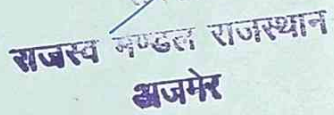 राजस्व मण्डल राजस्थान
अजमेर